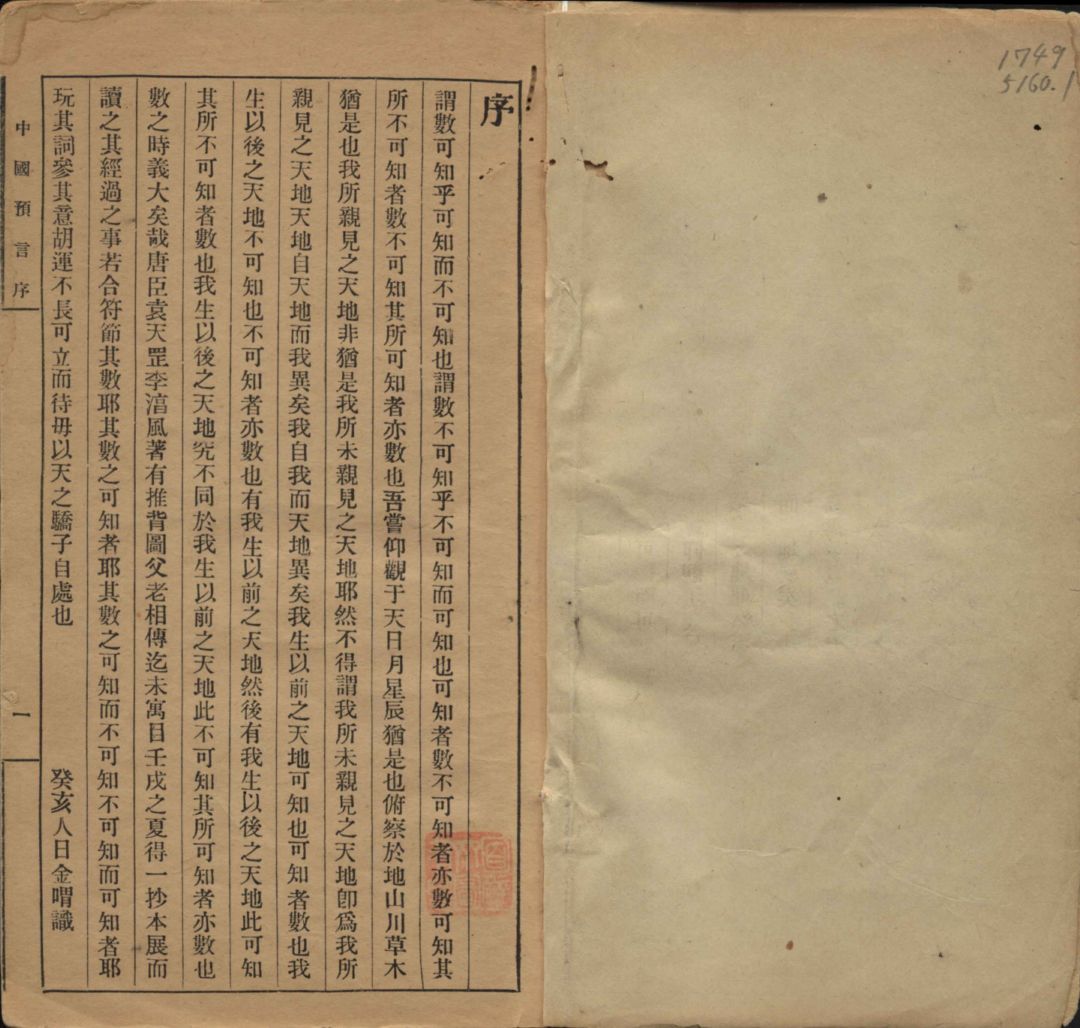 1749
5160.1
序
謂數可知乎可知而不可知也謂數不可知乎不可知而可知也可知者數不可知者亦數可知其
所不可知者數不可知其所可知者亦數也吾嘗仰觀于天日月星辰猶是也俯察於地山川草木
猶是也我所親見之天地非猶是我所未親見之天地耶然不得謂我所未親見之天地卽爲我所
親見之天地天地自天地而我異矣我自我而天地異矣我生以前之天地可知也可知者數也我
生以後之天地不可知也不可知者亦數也有我生以前之天地然後有我生以後之天地此可知
其所不可知者數也我生以後之天地究不同於我生以前之天地此不可知其所可知者亦數也
數之時義大矣哉唐臣袁天罡李湻風著有推背圖父老相傳迄未寓目壬戌之夏得一抄本展而
讀之其經過之事若合符節其數耶其數之可知者耶其數之可知而不可知不可知而可知者耶
玩其詞參其意胡運不長可立而待毋以天之驕子自處也
癸亥人日金喟識
中國預言序
一